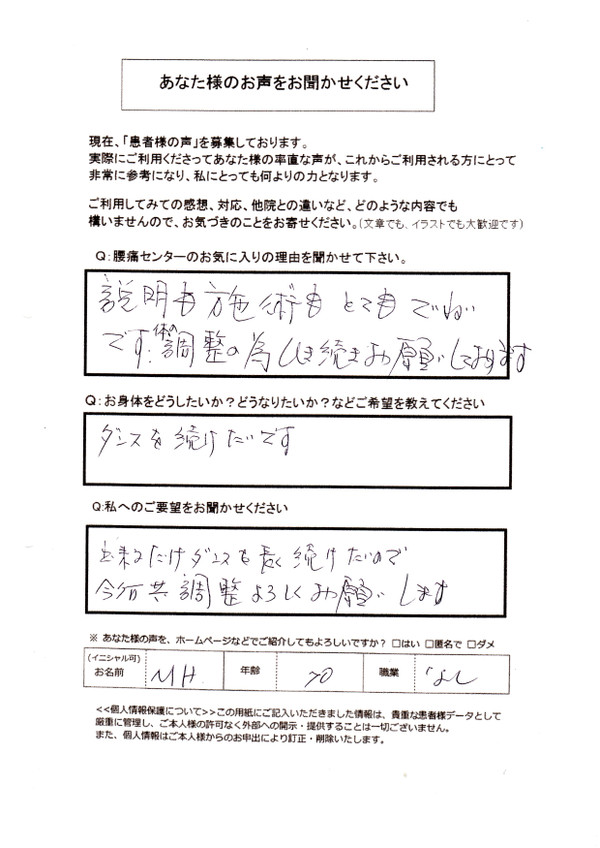 あなた様のお声をお聞かせください
現在、「患者様の声」を募集しております。
実際にご利用くださってあなた様の率直な声が、これからご利用される方にとって
非常に参考になり、私にとっても何よりの力となります。
ご利用してみての感想、対応、他院との違いなど、どのような内容でも
構いませんので、お気づきのことをお寄せください。(文章でも、イラストでも大歓迎です)
Q:腰痛センターのお気に入りの理由を聞かせて下さい。
説明も施術も とても でねい
です。体の調整の為 引き続きお願いしております
Q:お身体をどうしたいか?どうなりたいか?などご希望を教えてください
ダンスを続けたいです
Q:私へのご要望をお聞かせください
出来るだけダンスを長く続けたいので
今后共調整よろしくお願いします
※ あなた様の声を、ホームページなどでご紹介してもよろしいですか? □はい □匿名で □ダメ
(イニシャル可)
お名前 MH 年齢 70 職業 なし
<<個人情報保護について>>この用紙にご記入いただきました情報は、貴重な患者様データとして
厳重に管理し、ご本人様の許可なく外部への開示・提供することは一切ございません。
また、個人情報はご本人様からのお申出により訂正・削除いたします。